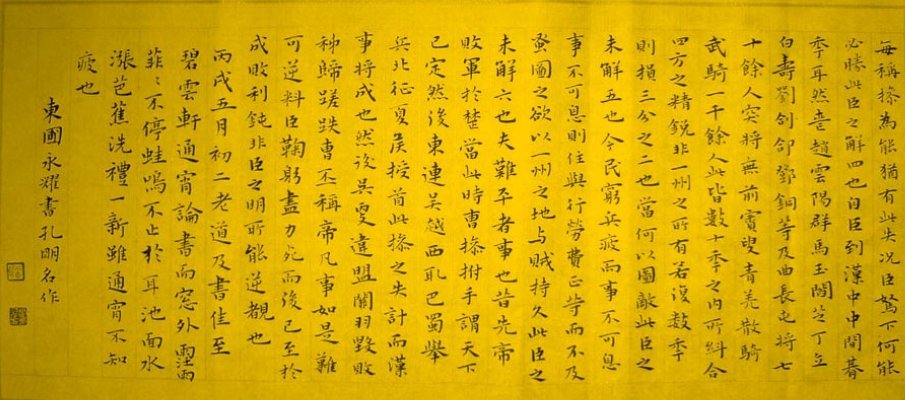 每稱操為能猶有此失况臣駑下何能
必勝此臣之解四也自臣到漢中中間朞
季耳然喪趙雲陽群馬玉閻芝丁立
白壽劉郃鄧銅等及曲長屯將七
十餘人突將無前賨叟青羌散騎
武騎一千餘人此皆數十季之内所糾合
四方之精銳非一州之所有若復數季
則損三分之二也當何以圖敵此臣之
未解五也今民窮兵疲而事不可息
事不可息則住與行勞費正等而不及
蚤圖之欲以一州之地与賊持久此臣之
未解六也夫難平者事也昔先帝
敗軍於楚當此時曹操拊手謂天下
已定然後東連吴越西取巴蜀舉
兵北征夏侯授首此操之失計而漢
事將成也然後吴更違盟關羽毀敗
秭歸蹉跌曹丕稱帝凡事如是難
可逆料臣鞠躬盡力死而後已至於
成敗利鈍非臣之明所能逆覩也
丙戌五月初二老道及書佳至
碧雲軒通宵論書而窓外霪雨
菲々不停蛙鳴不止於耳池面水
漲芭蕉洗禮一新雖通宵不知
疲也
東圃永耀書孔明名作